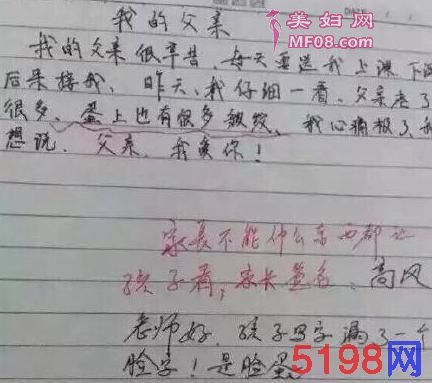 美妇网
MF08.com
DATE
我的父亲
我的父亲很辛苦、每天要送我上课、下课
后来接我、昨天、我仔细一看、父亲老了
很多、蛋上也有很多皱纹、我心痛极了、我
想说、父亲、我爱你！
家长不能什么东西都让
孩子看，家长签名：高风
老师好、孩子写字漏了一个
脸字！是脸蛋
5198网